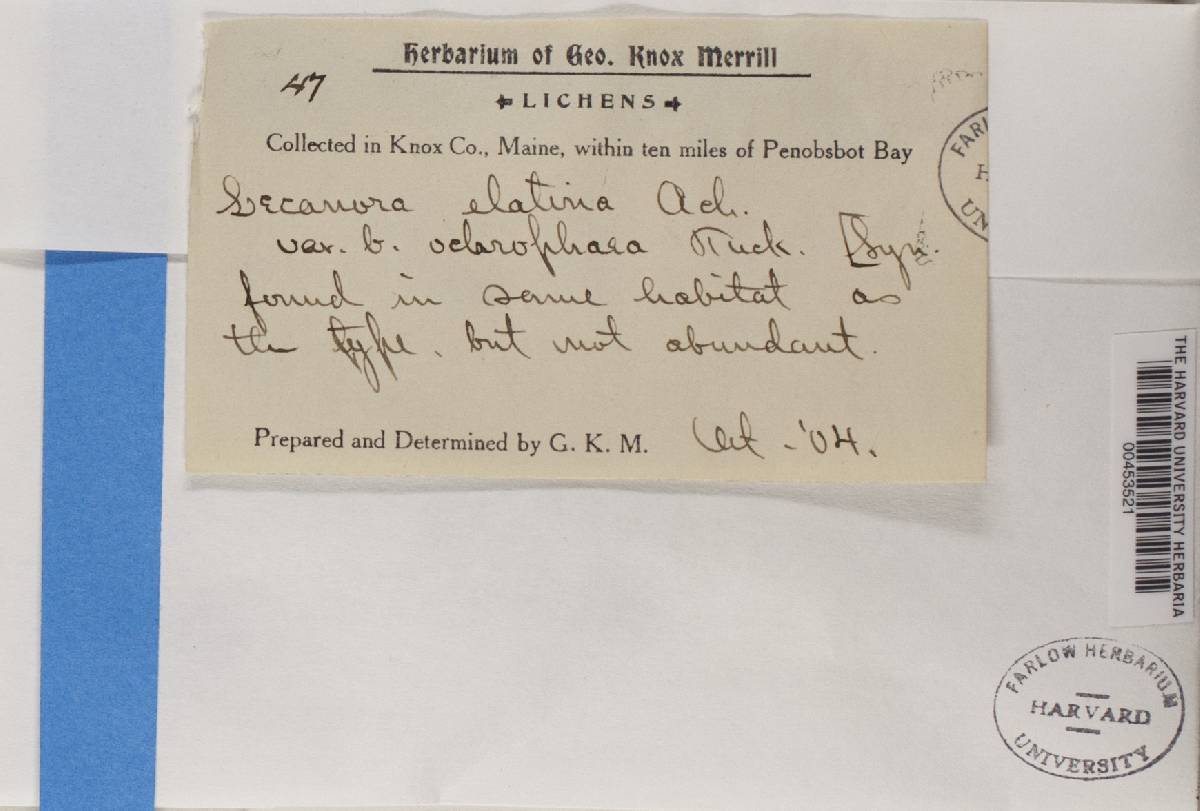 Herbarium of Geo. Knox Merrill
47
LICHENS
Collected in Knox Co., Maine, within ten miles of Penobsbot Bay
Lecanora elatina Ach.
var. b. ochrophaea Tuck. [Syn.
found in same habitat as
the type, but not abundant.
Prepared and Determined by G. K. M. Oct - '04.
FAR
H
UN
THE HARVARD UNIVERSITY HERBARIA
00453521
FARLOW HERBARIUM
HARVARD
UNIVERSITY